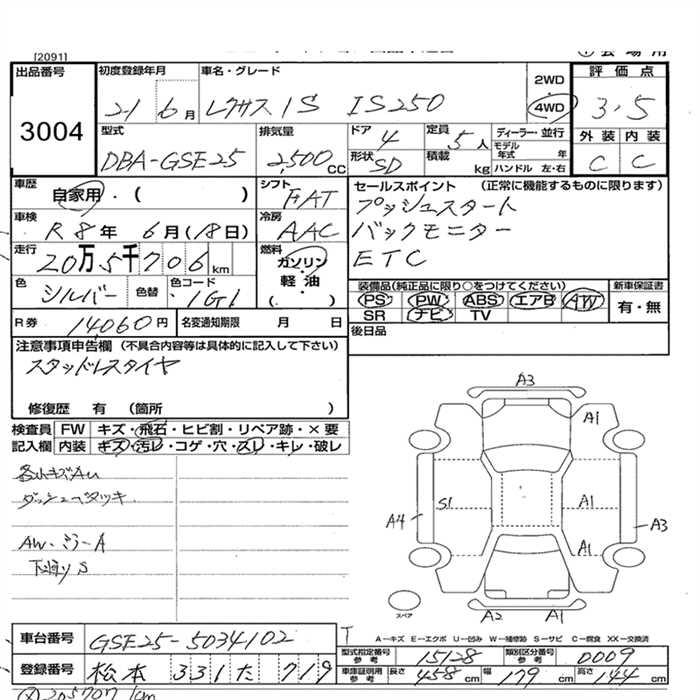 [2091]
出品番号
3004
初度登録年月
21 6月
車名・グレード
レクサスIS IS250
2WD
・
4WD
評価点
3.5
外装 内装
C C
型式
DBA-GSE25
排気量
2,500cc
ドア 4
形状 SD
定員 5人
積載 kg
ディーラー・並行
モデル年式 年
ハンドル 左・右
車歴
自家用・( )
シフト
FAT
車検
R8年 6月(18日)
冷房
AAC
走行
20万5千706km
燃料
ガソリン・
軽油・
( )
色
シルバー
色替
色コード
1G1
R券 14060円
名変通知期限 月 日
セールスポイント (正常に機能するものに限ります)
プッシュスタート
バックモニター
ETC
装備品(純正品に限り○をつけてください)
PS PW ABS エアB AW
SR ナビ TV
新車保証書
有・無
後日品
注意事項申告欄 (不具合内容等は具体的に記入して下さい)
スタッドレスタイヤ
修復歴 有 (箇所 )
検査員 FW キズ・飛石・ヒビ割・リペア跡・×要
記入欄 内装 キズ・汚レ・コゲ・穴・スレ・キレ・破レ
ダッシュベタツキ
AW・ミラーA
下廻りS
A3
A1
S1
A1
A4
A3
A1
A2
A1
スペア
A—キズ E—エクボ U—凹み W—補修跡 S—サビ C—腐食 XX—交換済
車台番号
GSE25-5034102
型式指定番号
参考
15128
類別区分番号
参考
0009
登録番号
松本 331 た 719
車庫証明用
参考
長さ 458cm
幅 179cm
高さ 144cm
205707km